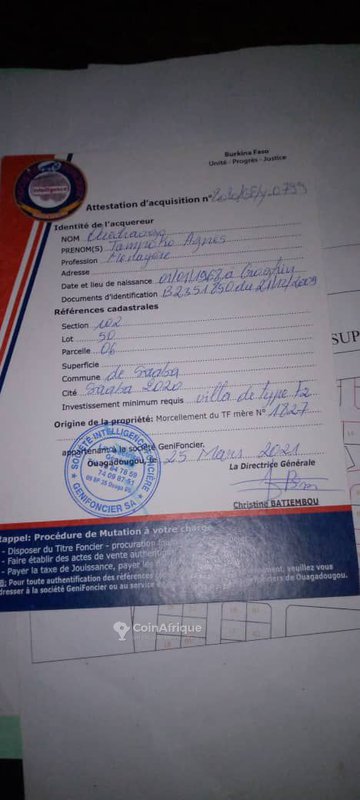 intelligence
Burkina Faso
Unité - Progrès - Justice
Attestation d'acquisition n°
Identité de l'acquereur
NOM Ouedraogo
PRENOM(S) Tampoko Agnes
Profession Menagère
Adresse
Date et lieu de naissance 01/01/1968 a
Documents d'identification B2351750 du 21/12/2009
Références cadastrales
Section 102
Lot 50
Parcelle 06
Superficie
Commune de Saaba
Cité Saaba 2020
Investissement minimum requis villa de type F2
Origine de la propriété: Morcellement du TF mère N° 1827
appartenant à la société GeniFoncier.
Ouagadougou, le 25 Mars 2021
La Directrice Générale
Christine BATIEMBOU
SOCIÉTÉ INTELLIGENCE FONCIERE
GENIFONCIER SA
Rappel: Procédure de Mutation à votre charge
- Disposer du Titre Foncier - procuration
- Faire établir des actes de vente
- Payer la taxe de Jouissance, payer les
Pour toute authentification des références
veuillez vous
adresser à la société GeniFoncier ou au service
de Ouagadougou.
SUP
CoinAfrique